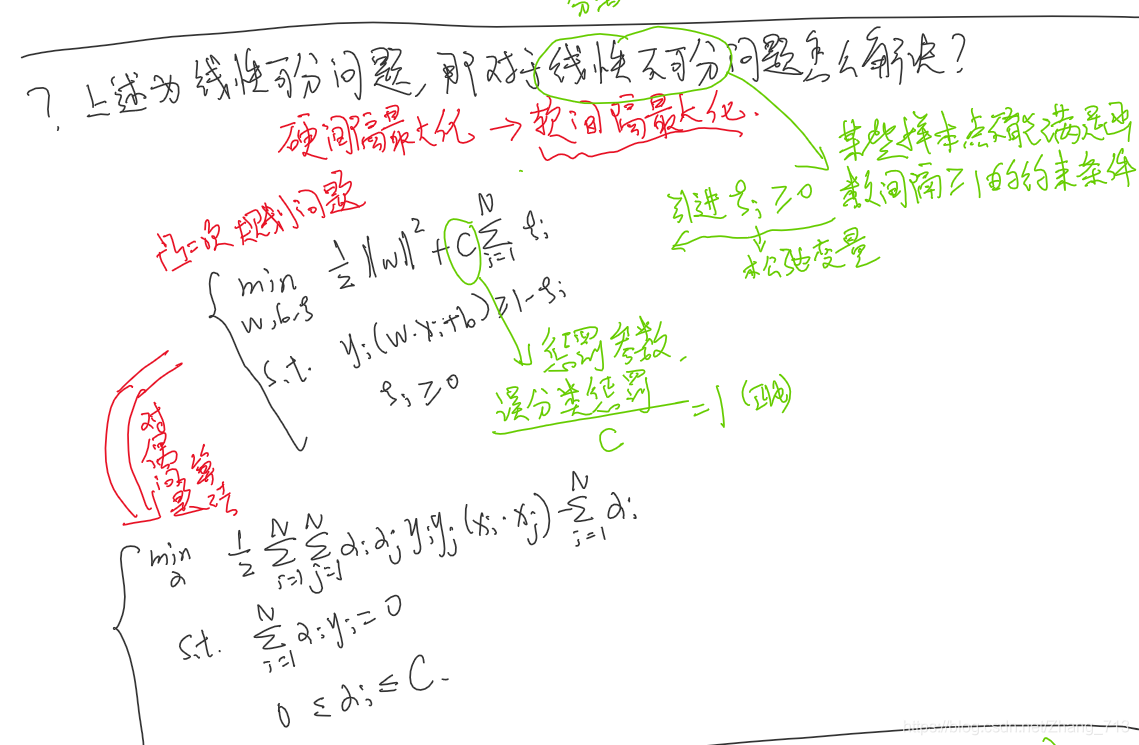 ? 上述为线性可分问题，那对于线性不可分问题怎么解决?
硬间隔最大化 → 软间隔最大化.
某些样本点不能满足函
数间隔≥1的约束条件
引进 ξi ≥ 0
松弛变量
凸二次规划问题
min 1/2 ||w||² + C Σ_{i=1}^{N} ξi
w,b,ξ
s.t. yi(w·xi+b) ≥ 1-ξi
ξi ≥ 0
惩罚参数.
误分类惩罚
C
=1
对偶问题
算法
min 1/2 Σ_{i=1}^{N} Σ_{j=1}^{N} αi αj yi yj (xi·xj) - Σ_{i=1}^{N} αi
α
s.t. Σ_{i=1}^{N} αi yi = 0
0 ≤ αi ≤ C.
https://blog.csdn.net/Zhang_713